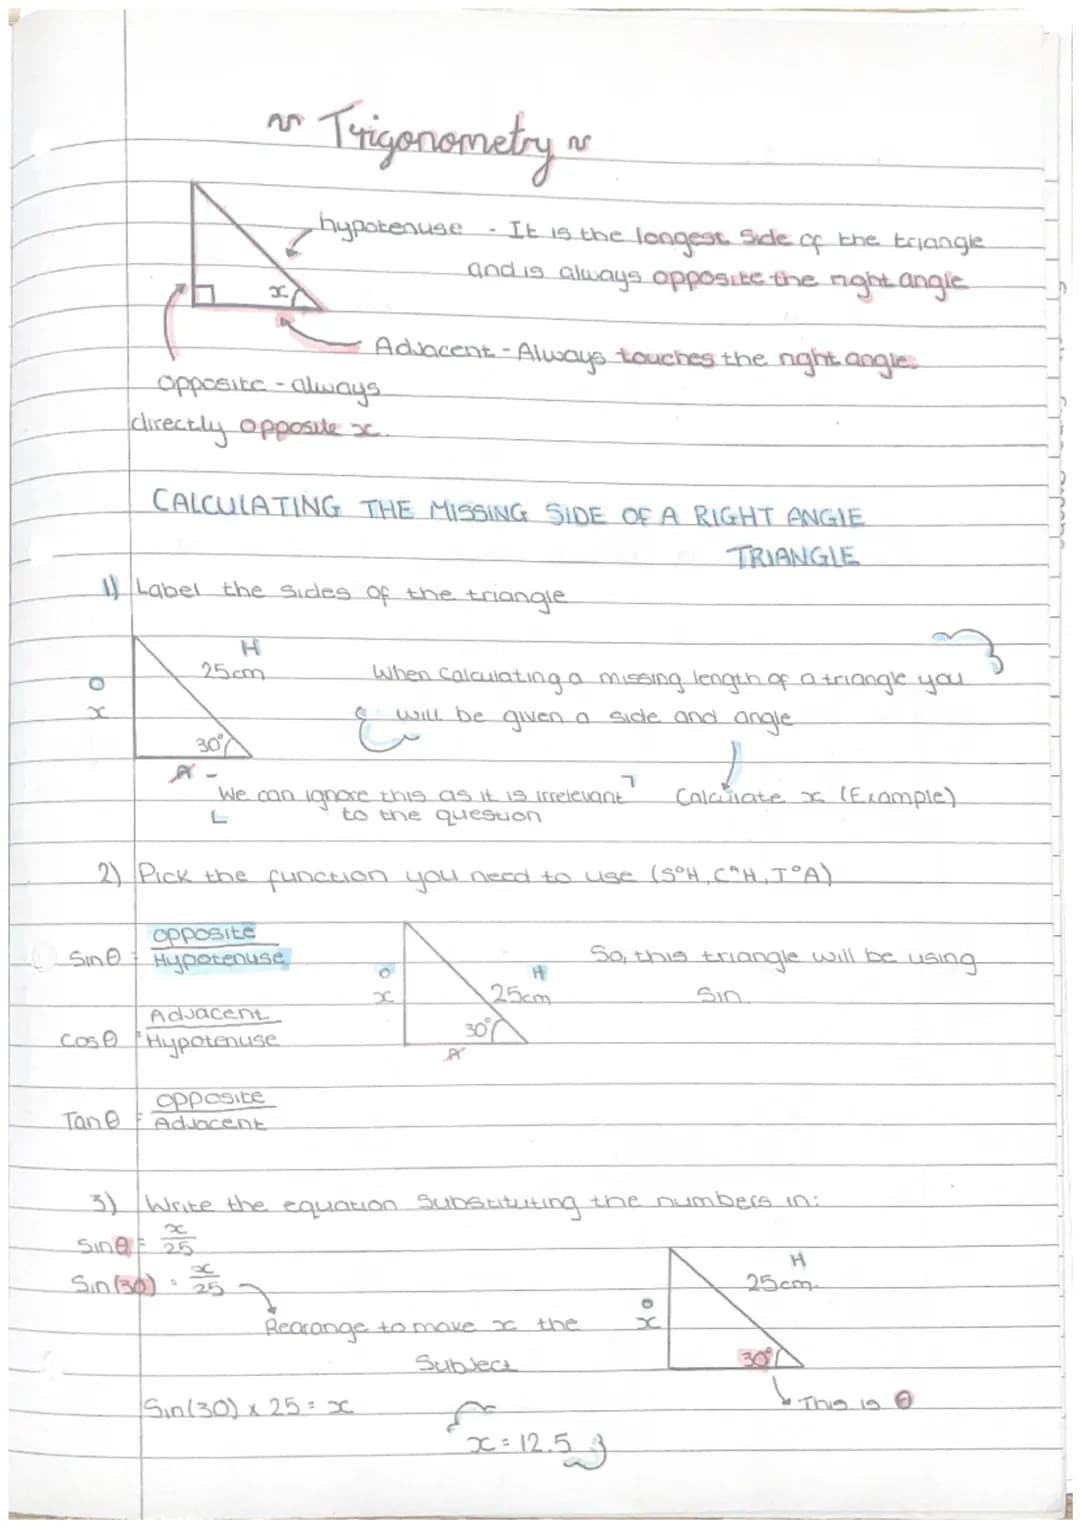 ~ Trigonometry ~
hypotenuse - It is the longest side of the triangle
and is always opposite the right angle
x
Adjacent - Always touches the right angle.
Opposite - always
directly opposite x.
CALCULATING THE MISSING SIDE OF A RIGHT ANGLE
TRIANGLE
1) Label the sides of the triangle
H
25cm
O
x
30°
A -
When calculating a missing length of a triangle you
will be given a side and angle
We can ignore this as it is irrelevant
to the question
Calculate x (Example)
2) Pick the function you need to use (S°H, CᴬH, T°A)
Sinθ = Opposite
Hypotenuse
Cosθ = Adjacent
Hypotenuse
Tanθ = Opposite
Adjacent
O
x
H
25cm
30°
A
So, this triangle will be using
Sin.
3) Write the equation substituting the numbers in:
Sinθ = x
25
Sin(30) = x
25
Rearange to make x the
Subject
Sin(30) x 25 = x
x = 12.5
H
25cm.
O
x
30°
This is θ